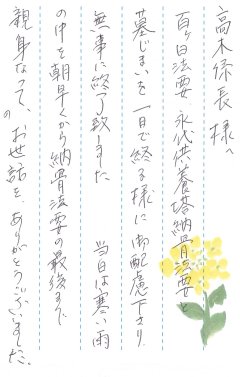 高木係長様へ
百ヶ日法要 永代供養塔納骨法要と
墓じまいを一日で終る様に御配慮下さり
無事に終了致ました 当日は寒い雨
の中を朝早くから納骨法要の最後まで
親身なって、お世話を、ありがとうございました。